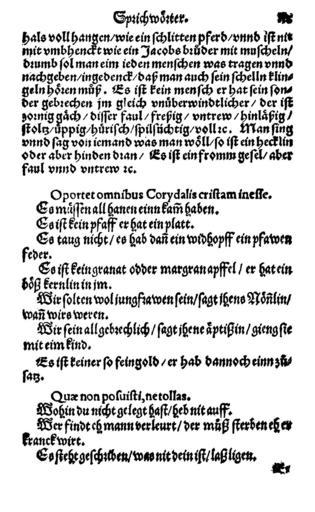 Sprichwörter.
hals voll hangen/wie ein schlitten pferd/vnnd ist nit
mit vmbhenckt wie ein Jacobs brüder mit muscheln/
drumb sol man ein ieden menschen was tragen vnnd
nachgeben/ingedenck/daß man auch sein schelln klin-
geln hören müß. Es ist kein mensch er hat sein son-
der gebrechen jm gleich vnüberwindtlicher/ der ist
zornig gäch/ disser faul/ freßig/ vntrew/hinläßig/
stoltz/üppig/hürisch/spilsüchtig/voll ꝛc. Man sing
vnnd sag von iemand was man wöll/so ist ein hecklin
oder aber hinden dran/ Es ist ein fromm gesel/ aber
faul vnnd vntrew ꝛc.
Oportet omnibus Corydalis cristam inesse.
Es müssen all hanen einn kam̃ haben.
Es ist kein pfaff er hat ein platt.
Es taug nicht/ es hab dañ ein widhopff ein pfawen
feder.
Es ist kein granat odder margran apffel/ er hat ein
böß kernlin in jm.
Wir solten wol jungfrawen sein/sagt jhens Nöñlin/
wañ wirs weren.
Wir sein all gebrechlich/ sagt jhene äptißin/ gieng sie
mit eim kind.
Es ist keiner so feingold/ er hab dannoch einn zů-
satz.
Quæ non posuisti, ne tollas.
Wohin du nicht gelegt hast/heb nit auff.
Wer findt eh mann verleurt/ der müß sterben eh er
kranck wirt.
Es steht geschriben/was nit dein ist/laß ligen.